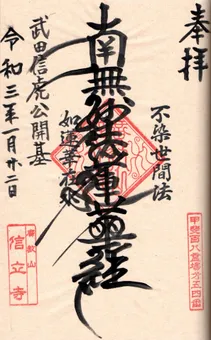 奉拝
不染世間法
南無妙法蓮華経
如蓮華在水
武田信虎公開基
令和三年一月廿二日
甲斐百八霊場第五四番
廣教山
信立寺